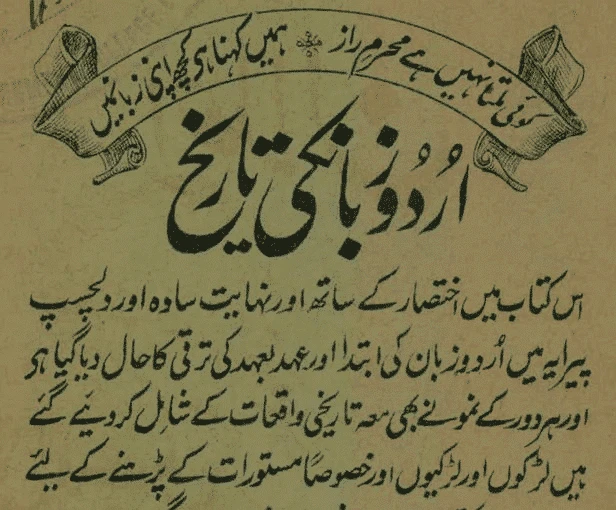 کوئی ملتا نہیں ہے محرم راز ہمیں کہنا ہی کچھ اپنی زبانمیں
اُردو زبانکی تاریخ
اس کتاب میں اختصار کے ساتھ اور نہایت سادہ اور دلچسپ
پیرایہ میں اُردو زبان کی ابتدا اور عہد بعہد کی ترقی کا حال دیا گیا ہی
اور ہر دور کے نمونے بھی معہ تاریخی واقعات کے شامل کر دیئے گئے
ہیں لڑکوں اور لڑکیوں اور خصوصاً مستورات کے پڑہنے کے لیئے